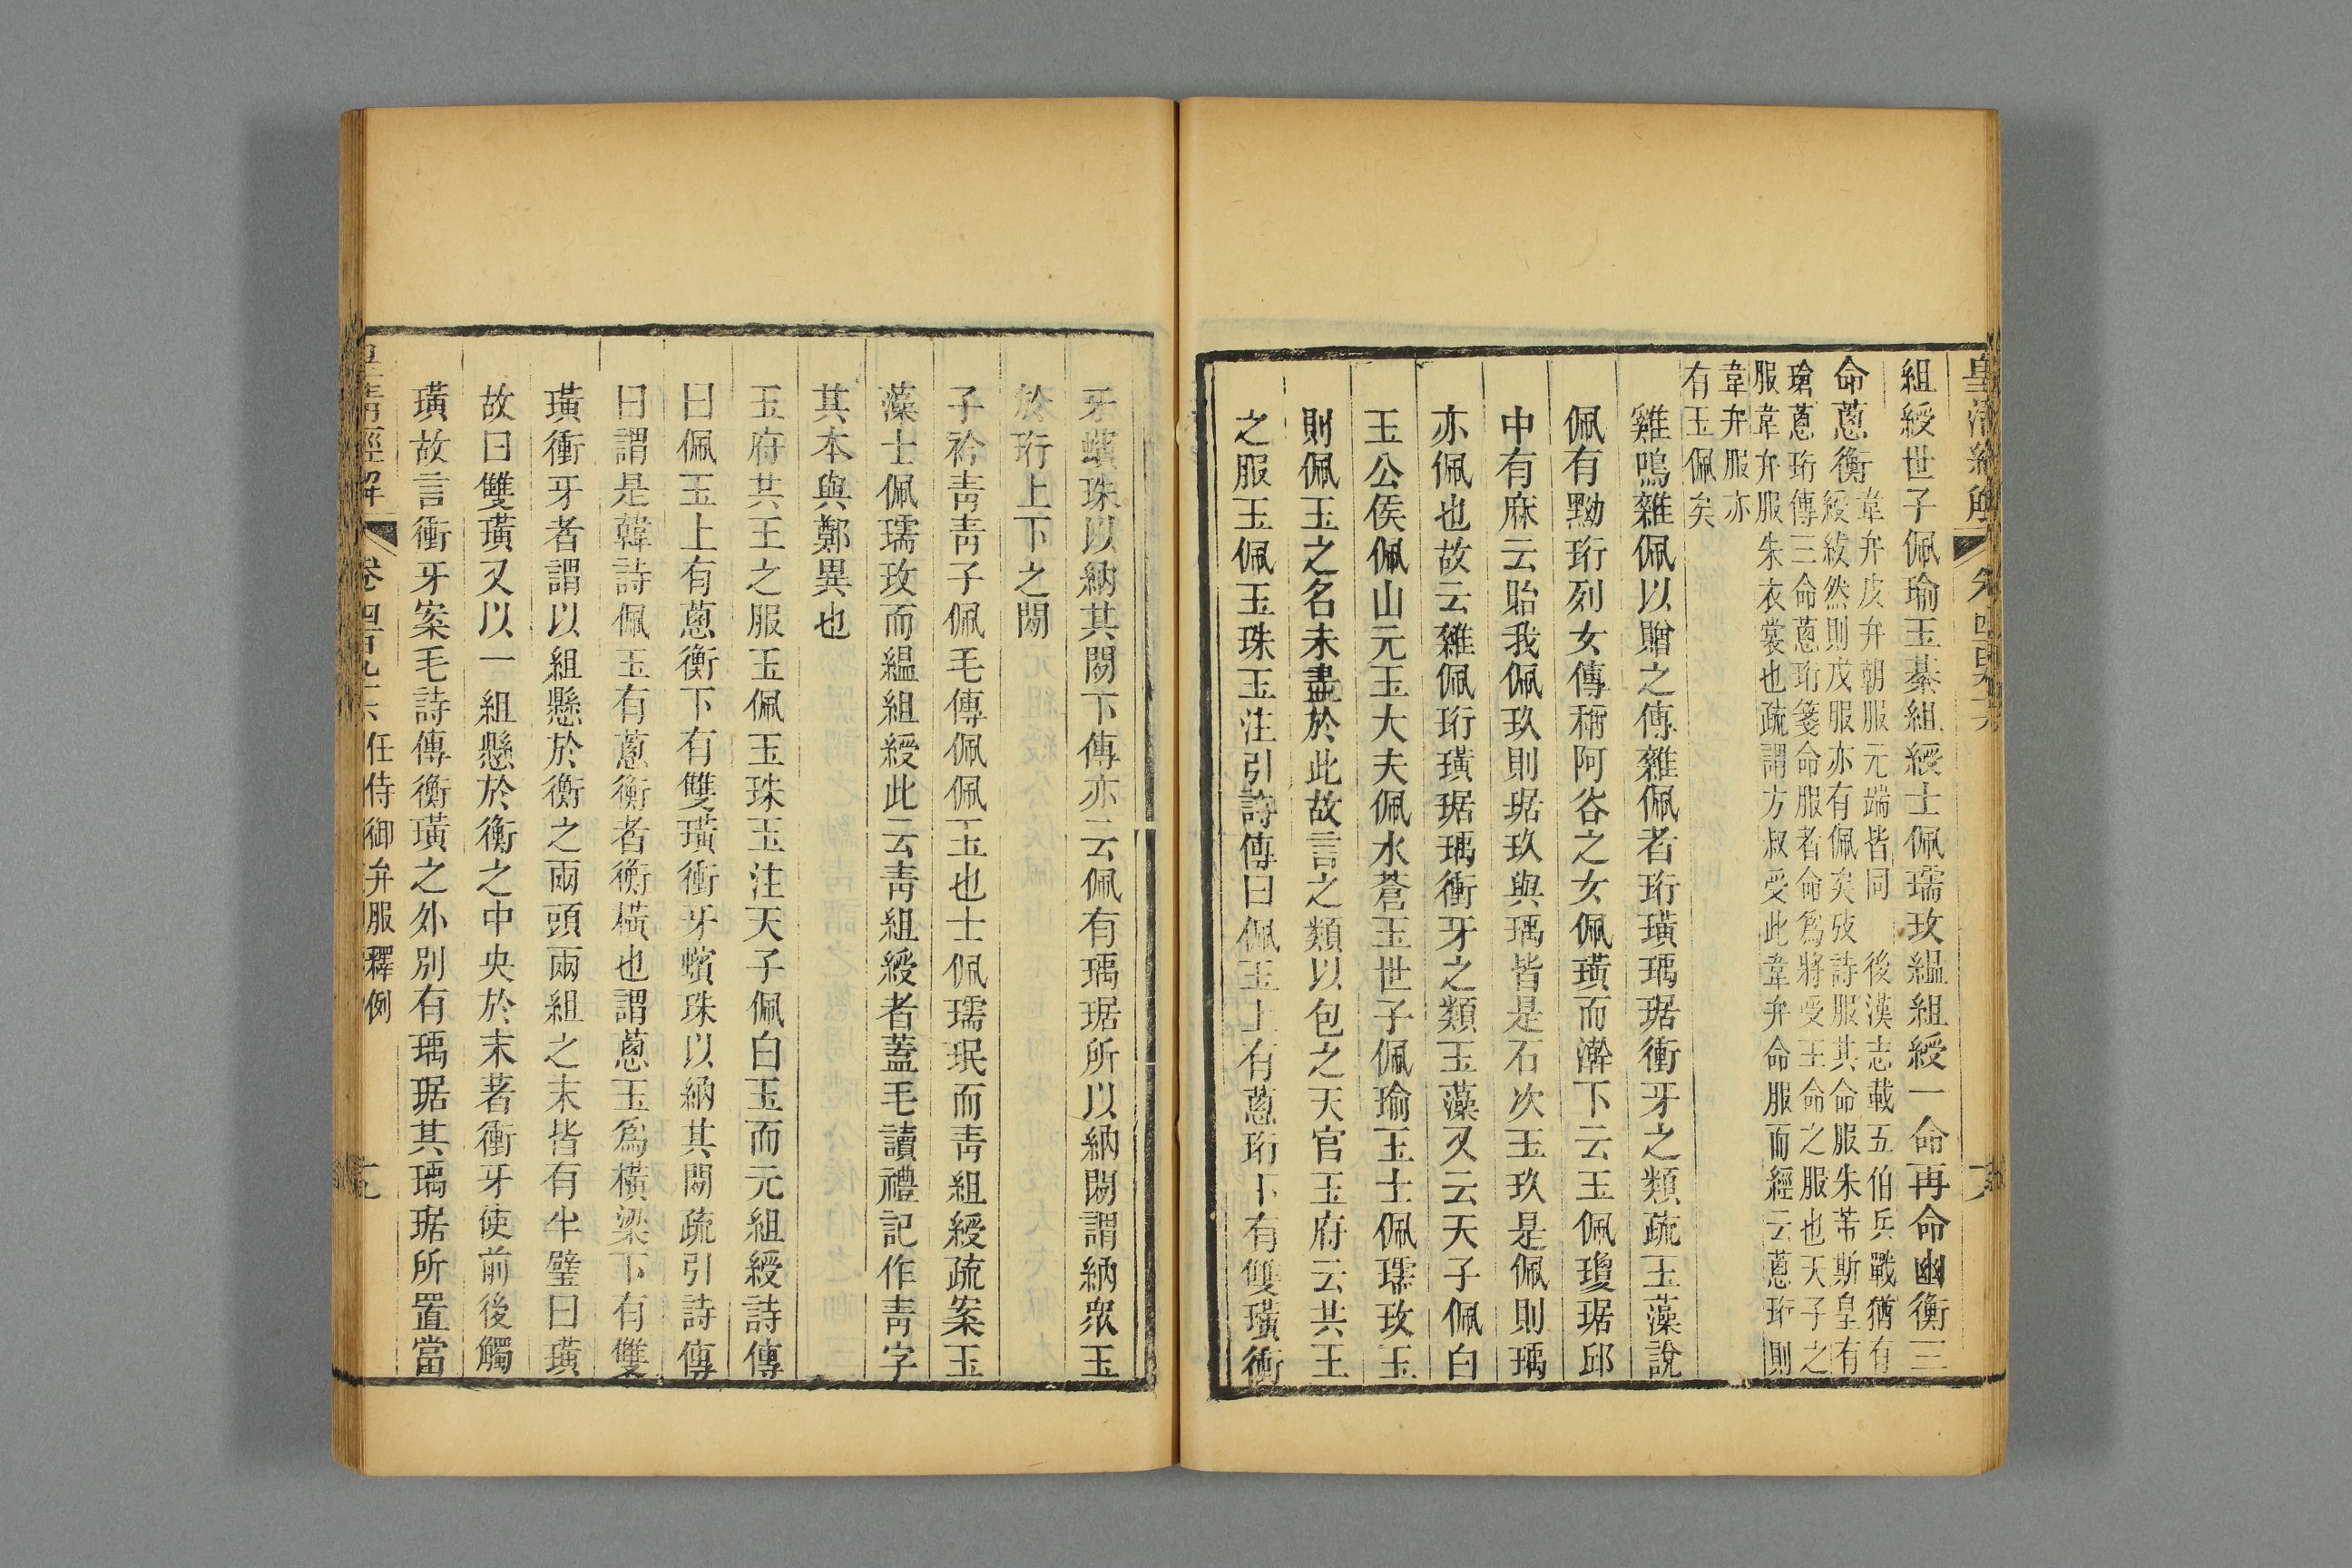 皇清經解
組綬世子佩瑜玉綦組綬士佩瓀玫縕組綬一命再命幽衡三
命蔥衡
韋弁皮弁朝服元端皆同
綬紱然則戎服亦有佩矣
後漢志載五伯兵戰猶有
詩服其命服朱芾斯皇有
瑲蔥珩傳三命蔥珩箋命服者命爲將受王命之服也天子之
服韋弁服朱衣裳也疏謂方叔受此韋弁命服而經云蔥珩則
韋弁服亦
有玉佩矣
雞鳴雜佩以贈之傳雜佩者珩璜瑀琚衝牙之類疏玉藻說
佩有黝珩列女傳稱阿谷之女佩璜而澣下云玉佩瓊琚邱
中有麻云貽我佩玖則琚玖與瑀皆是石次玉玖是佩則瑀
亦佩也故云雜佩珩璜琚瑀衝牙之類玉藻又云天子佩白
玉公侯佩山元玉大夫佩水蒼玉世子佩瑜玉士佩瓀玫玉
則佩玉之名未盡於此故言之類以包之天官玉府云共王
之服玉佩玉珠玉注引詩傳曰佩玉上有蔥珩下有雙璜衝
牙蠙珠以納其閒下傳亦云佩有瑀琚所以納閒謂納衆玉
於珩上下之閒
子衿靑靑子佩毛傳佩佩玉也士佩瓀珉而靑組綬疏案玉
藻士佩瓀玫而縕組綬此云靑組綬者蓋毛讀禮記作靑字
其本與鄭異也
玉府共王之服玉佩玉珠玉注天子佩白玉而元組綬詩傳
曰佩玉上有蔥衡下有雙璜衝牙蠙珠以納其閒疏引詩傳
曰謂是韓詩佩玉有蔥衡者衡橫也謂蔥玉爲橫梁下有雙
璜衝牙者謂以組懸於衡之兩頭兩組之末皆有半璧曰璜
故曰雙璜又以一組懸於衡之中央於末著衝牙使前後觸
璜故言衝牙案毛詩傳衡璜之外別有瑀琚其瑀琚所置當
皇清經解 卷四百九十六 任侍御弁服釋例